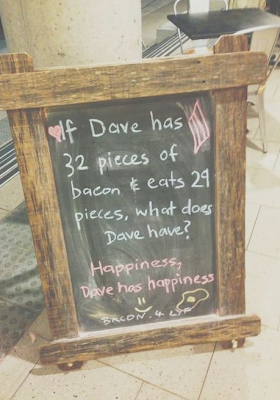 If Dave has
32 pieces of
bacon & eats 29
pieces, what does
Dave have?
Happiness,
Dave has happiness
BACON. 4 LYF